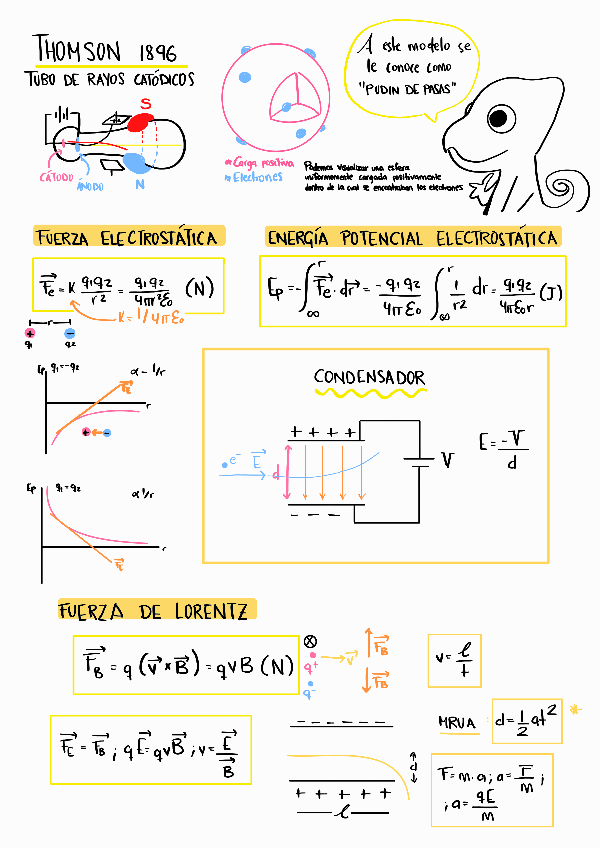 THOMSON 1896
TUBO DE RAYOS CATÓDICOS
S
CÁTODO
ÁNODO
N
* Carga positiva
* Electrones
A este modelo se
le conoce como
"PUDIN DE PASAS"
Podemos visualizar una esfera
uniformemente cargada positivamente
dentro de la cual se encontraban los electrones
FUERZA ELECTROSTÁTICA
F⃗e = K q₁q₂/r² = q₁q₂/4πr²ε₀ (N)
K = 1/4πε₀
r
+ -
q₁ q₂
Ep q₁=-q₂ α - 1/r
F⃗E
r
+ -
Ep q₁=q₂ α 1/r
r
F⃗E
ENERGÍA POTENCIAL ELECTROSTÁTICA
Ep = -∫∞^r F⃗e · dr⃗ = -q₁q₂/4πε₀ ∫∞^r 1/r² dr = q₁q₂/4πε₀r (J)
CONDENSADOR
+ + + + +
e⁻ E⃗ d
V
E = -V/d
- - - -
FUERZA DE LORENTZ
F⃗B = q (v⃗ × B⃗) = qvB (N)
⊗
q⁺ v⃗ F⃗B
q⁻ F⃗B
v = l/t
F⃗E = F⃗B ; qE⃗ = qvB⃗ ; v = E⃗/B⃗
- - - - - -
d
+ + + + + +
l
MRUA d = 1/2 at² *
F = m·a ; a = F/m ;
; a = qE/m